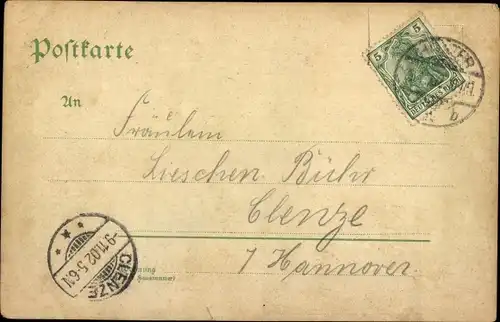 Postkarte
5 5
DEUTSCHES REICH
b
An
Fräulein
Lieschen Bühr
Clenze
/ Hannover.
-9.11.02.5-6N
CLENZE